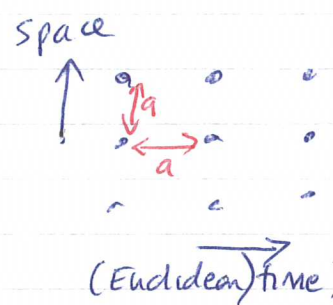 space
a
a
(Euclidean) time